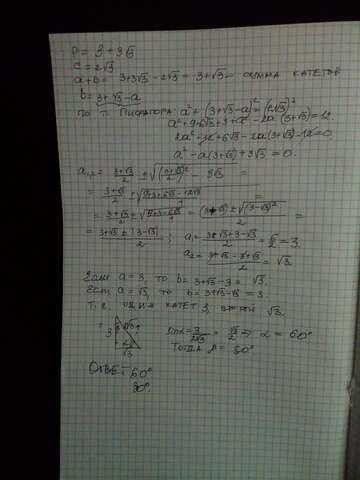 P = 3+3√3
c = 2√3
a+b = 3+3√3 - 2√3 = 3+√3 - сумма катетов
b = 3+√3-a
по т. Пифагора a² + (3+√3-a)² = (2√3)²
a² + 9+6√3+3+a² - 2a(3+√3) = 12.
2a² + 12 + 6√3 - 2a(3+√3) - 12 = 0
a² - a(3+√3) + 3√3 = 0.
a₁,₂ = (3+√3)/2 ± √((3+√3)²/4 - 3√3) =
= (3+√3)/2 ± √((12+6√3-12√3)/4) =
= (3+√3)/2 ± √((12-6√3)/4) = ((3+√3) ± √(3-√3)²)/2 =
= (3+√3 ± (3-√3))/2 ; a₁ = (3+√3+3-√3)/2 = 6/2 = 3.
a₂ = (3+√3-3+√3)/2 = √3.
Если a = 3, то b = 3+√3-3 = √3.
Если a = √3, то b = 3+√3-√3 = 3
Т.е. один катет 3, второй √3.
3 2√3 α √3
sinα = 3/2√3 = √3/2 ⇒ α = 60°
Тогда β = 30°
Ответ 60°
30°.